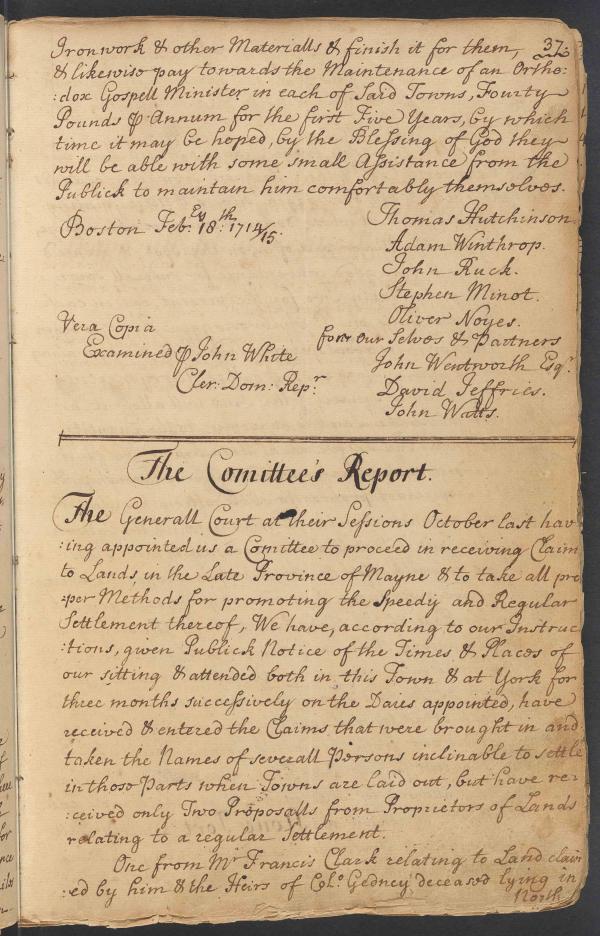 37.
Ironwork & other Materialls & finish it for them,
& likewise pay towards the Maintenance of an Ortho:
:dox Gospell Minister in each of Said Towns, Fourty
Pounds ⅌ Annum for the first Five Years, by which
time it may be hoped, by the Blessing of God they
will be able with some small Assistance from the
Publick to maintain him comfortably themselves.
Boston Feb.ry 18.th 1714/15.
Thomas Hutchinson
Adam Winthrop.
John Ruck.
Stephen Minot.
Oliver Noyes.
for our Selves & Partners
John Wentworth Esqr.
David Jeffries.
John Watts.
Vera Copia
Examined ⅌ John White
Cler: Dom: Repr.
The Comittee's Report.
The Generall Court at their Sessions October last hav
:ing appointed us a Comittee to proceed in receiving Claim
to Lands, in the Late Province of Mayne & to take all pro
:per Methods for promoting the Speedy and Regular
Settlement thereof, We have, according to our Instruc
:tions, given Publick Notice of the Times & Places of
our sitting & attended both in this Town & at York for
three months successively on the Daies appointed, have
received & entered the Claims that were brought in and
taken the Names of severall Persons inclinable to settle
in those Parts when Towns are laid out, but have re:
:ceived only Two Proposalls from Proprietors of Lands
relating to a regular Settlement.
One from Mr Francis Clark relating to Land claim
:ed by him & the Heirs of Colo. Gedney deceased lying in
North